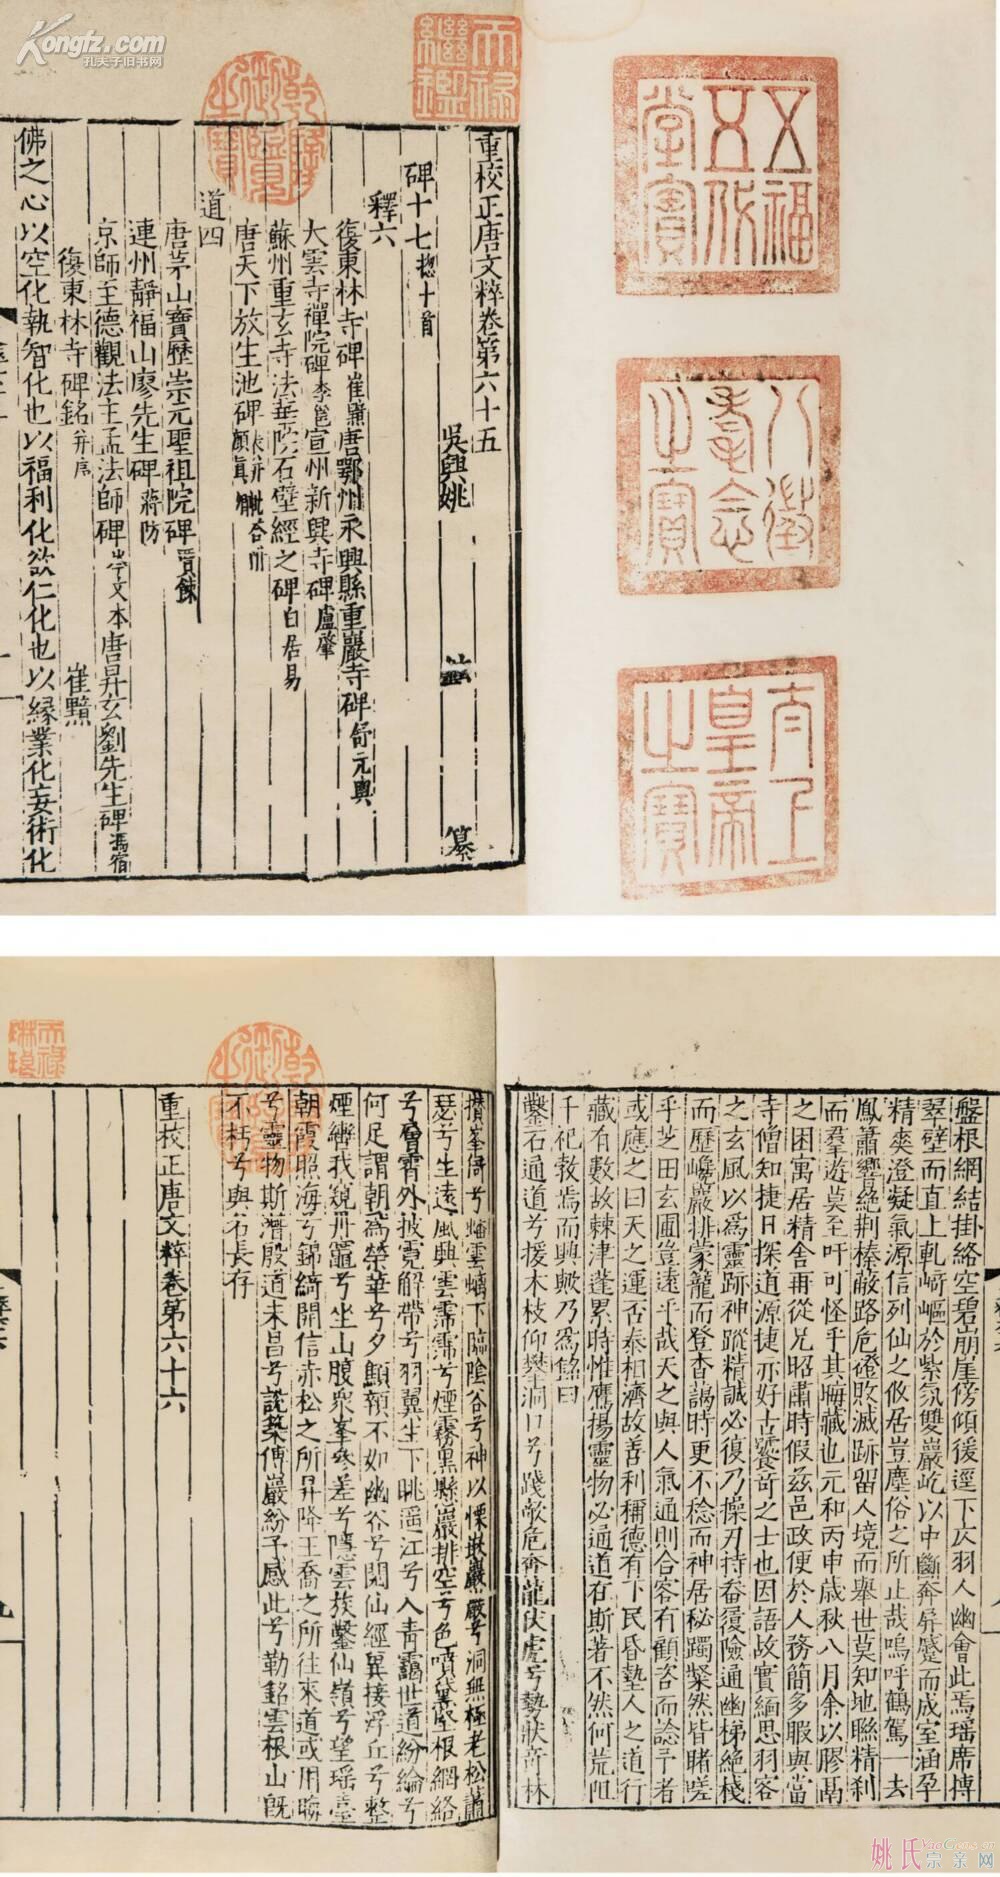 Kongfz.com
孔夫子旧书网
天祿
繼鑑
乾隆
御覽
之寶
五福
五代
堂寶
八徵
耄念
之寶
太上
皇帝
之寶
重校正唐文粹卷第六十五
吳興姚 纂
碑十七揔十首
釋六
復東林寺碑崔黯唐鄂州永興縣重巖寺碑舒元輿
大雲寺禪院碑李邕宣州新興寺碑盧肇
蘇州重玄寺法華院石壁經之碑白居易
唐天下放生池碑顏真卿
道四
唐茅山寶歷崇元聖祖院碑賈餗
連州靜福山廖先生碑蔣防
京師至德觀法主孟法師碑岑文本唐昇玄劉先生碑馮宿
復東林寺碑銘并序 崔黯
佛之心以空化執智化也以福利化欲仁化也以緣業化妄術化
盤根網結掛絡空碧崩崖傍傾後逕下仄羽人幽會此焉瑤席搏
翠壁而直上軋﨑嶇於紫氛雙巖屹以中斷奔屏蹙而成室涵孕
精爽澄凝氣源信列仙之攸居豈塵俗之所止哉嗚呼鶴駕一去
鳳簫響絕荆榛蔽路危磴敗滅跡留人境而舉世莫知地聮精刹
而羣遊莫至吁可怪乎其晦藏也元和丙申歲秋八月余以膠鬲
之困寓居精舍再從兄昭肅時假茲邑政便於人務簡多暇與當
寺僧知捷日探道源捷亦好古饕奇之士也因語故實緬思羽客
之玄風以爲靈跡神蹤精誠必復乃操刃持畚履險通幽梯絕棧
而歷巉巖排蒙籠而登杳謁時更不稔而神居秘躅粲然皆睹嗟
乎芝田玄圃豈遠乎哉天之與人氣通則合客有顧咨而諗予者
或應之曰天之運否泰相濟故善利稱德有下民昏墊人之道行
藏有數故棘津蓬累時惟鷹揚靈物必通道存斯著不然何荒阻
千祀敎焉而興歟乃爲銘曰
鑿石通道兮援木枝仰攀洞口兮踐欹危奔龍伏虎兮勢狀奇林
兮生遠風興雲霈霈兮煙霧黑縣巖排空兮色噴黛堅根網絡
兮霄外披霓解帶兮羽翼生下眺滛江兮入青靄世道紛綸兮
何足謂朝爲榮華兮夕顦顇不如幽谷兮閱仙經異接浮丘兮整
煙轡我覬丹竈兮坐山腹衆峯參差兮隱雲族鑿仙嶺兮望瑤臺
朝霞照海兮錦綺開信赤松之所昇降王喬之所往來道或用晦
兮靈物斯潛殷道未昌兮說築傅巖紛予感此兮勒銘雲根山旣
不朽兮與石長存
重校正唐文粹卷第六十六
乾隆
御覽
之寶
天祿
琳琅
姚氏
宗亲网